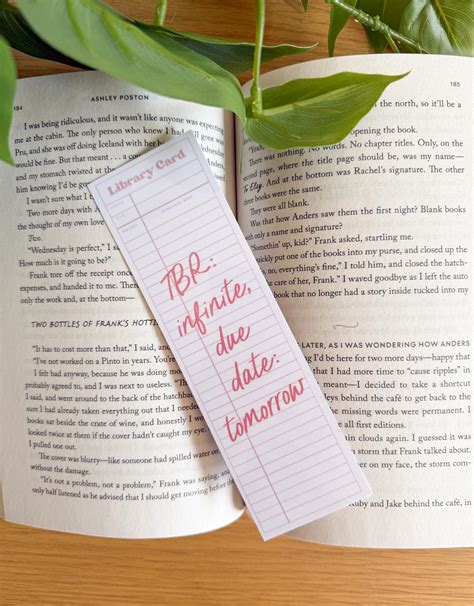 184
ASHLEY POSTON
I was being ridiculous, and it wasn't like anyone was expecting
me at the cabin. The only person who knew I had
would be fine. But that meant . . . a co
and my stomach twisted at the
him I'm kinda
I wasn't sure
Two more days with A
the thought of my own love
Two.
"Wednesday is perfect," I s
How much is it going to be?"
Frank tore off the receipt once
ments, and handed it to me. It was
reasonable, and at the bottom—
TWO BOTTLES OF FRANK'S HOTTE
"It has to cost more than that," I said, an
"Nope. I've worked on a Pinto in years. I'd
I felt bad anyway, because he was doing m
probably agreed to, and I was next to useless. "Th
said, and went around to the back of the hatchba
books sat beside the crate of wine, and honestly
looked twice at them if the cover hadn't caught my
I pulled one out.
The cover was blurry—like someone had spilled water on
without the damage.
"It's not a problem, not a problem," Frank was saying
only half listened as he advised that I should get moving before
Library Card
TBR:
infinite,
due
date:
tomorrow
185
the north, so it'll be a
opening the book.
There was nothing. No words. No chapter titles. Only, on the
second page, where the title page should be, was my name—
To Elsy. And at the bottom was Rachel's signature. The other
three books were the same.
They were all blank.
What was that Anders saw them the first night? Blank books
with only a name and signature?
"Somethin' up, kid?" Frank asked, startling me.
I quickly put one of the books into my purse, and closed up the
"No, no, everything's fine," I told him, and closed the hatch-
back. I waved goodbye as I left the
no longer had a story inside tucked into my
LATER, AS I WAS WONDERING HOW ANDERS
I'd be here for two more days—happy that
I had more time to "cause ripples" in
meant—I decided to take a shortcut
behind the café to get back to the
books were more permanent.
all first editions.
clouds again. I guessed it was
storm that Frank talked about.
on my face, the storm com-
Ruby and Jake behind the café, in